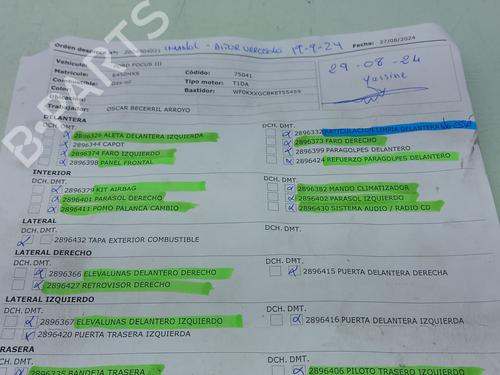 Orden desp
IMANOL - AITOR URROSOLO 19-9-24
Fecha: 27/08/2024
Vehículo: FORD FOCUS III
Matrícula: 8450HXS
Código: 75041
Combustible: Gas-oil
Tipo motor: T1DA
Ubicación:
Bastidor:
Trabajador: OSCAR BECERRIL ARROYO
29-08-24
Yassine
B-PARTS
DELANTERA
DCH. DMT.
2896326 ALETA DELANTERA IZQUIERDA
2896344 CAPOT
2896374 FARO IZQUIERDO
2896398 PANEL FRONTAL
DCH. DMT.
2896332 ARTICULACION LIMPIA DELANTERA
2896373 FARO DERECHO
2896399 PARAGOLPES DELANTERO
2896424 REFUERZO PARAGOLPES DELANTERO
INTERIOR
DCH. DMT.
2896379 KIT AIRBAG
2896401 PARASOL DERECHO
2896411 POMO PALANCA CAMBIO
DCH. DMT.
2896382 MANDO CLIMATIZADOR
2896402 PARASOL IZQUIERDO
2896430 SISTEMA AUDIO / RADIO CD
LATERAL
DCH. DMT.
2896432 TAPA EXTERIOR COMBUSTIBLE
LATERAL DERECHO
DCH. DMT.
2896366 ELEVALUNAS DELANTERO DERECHO
2896427 RETROVISOR DERECHO
DCH. DMT.
2896415 PUERTA DELANTERA DERECHA
LATERAL IZQUIERDO
DCH. DMT.
2896367 ELEVALUNAS DELANTERO IZQUIERDO
2896420 PUERTA TRASERA IZQUIERDA
DCH. DMT.
2896416 PUERTA DELANTERA IZQUIERDA
TRASERA
DCH. DMT.
2896335 BANDEJA TRASERA
DCH. DMT.
2896406 PILOTO TRASERO IZQUIERDO